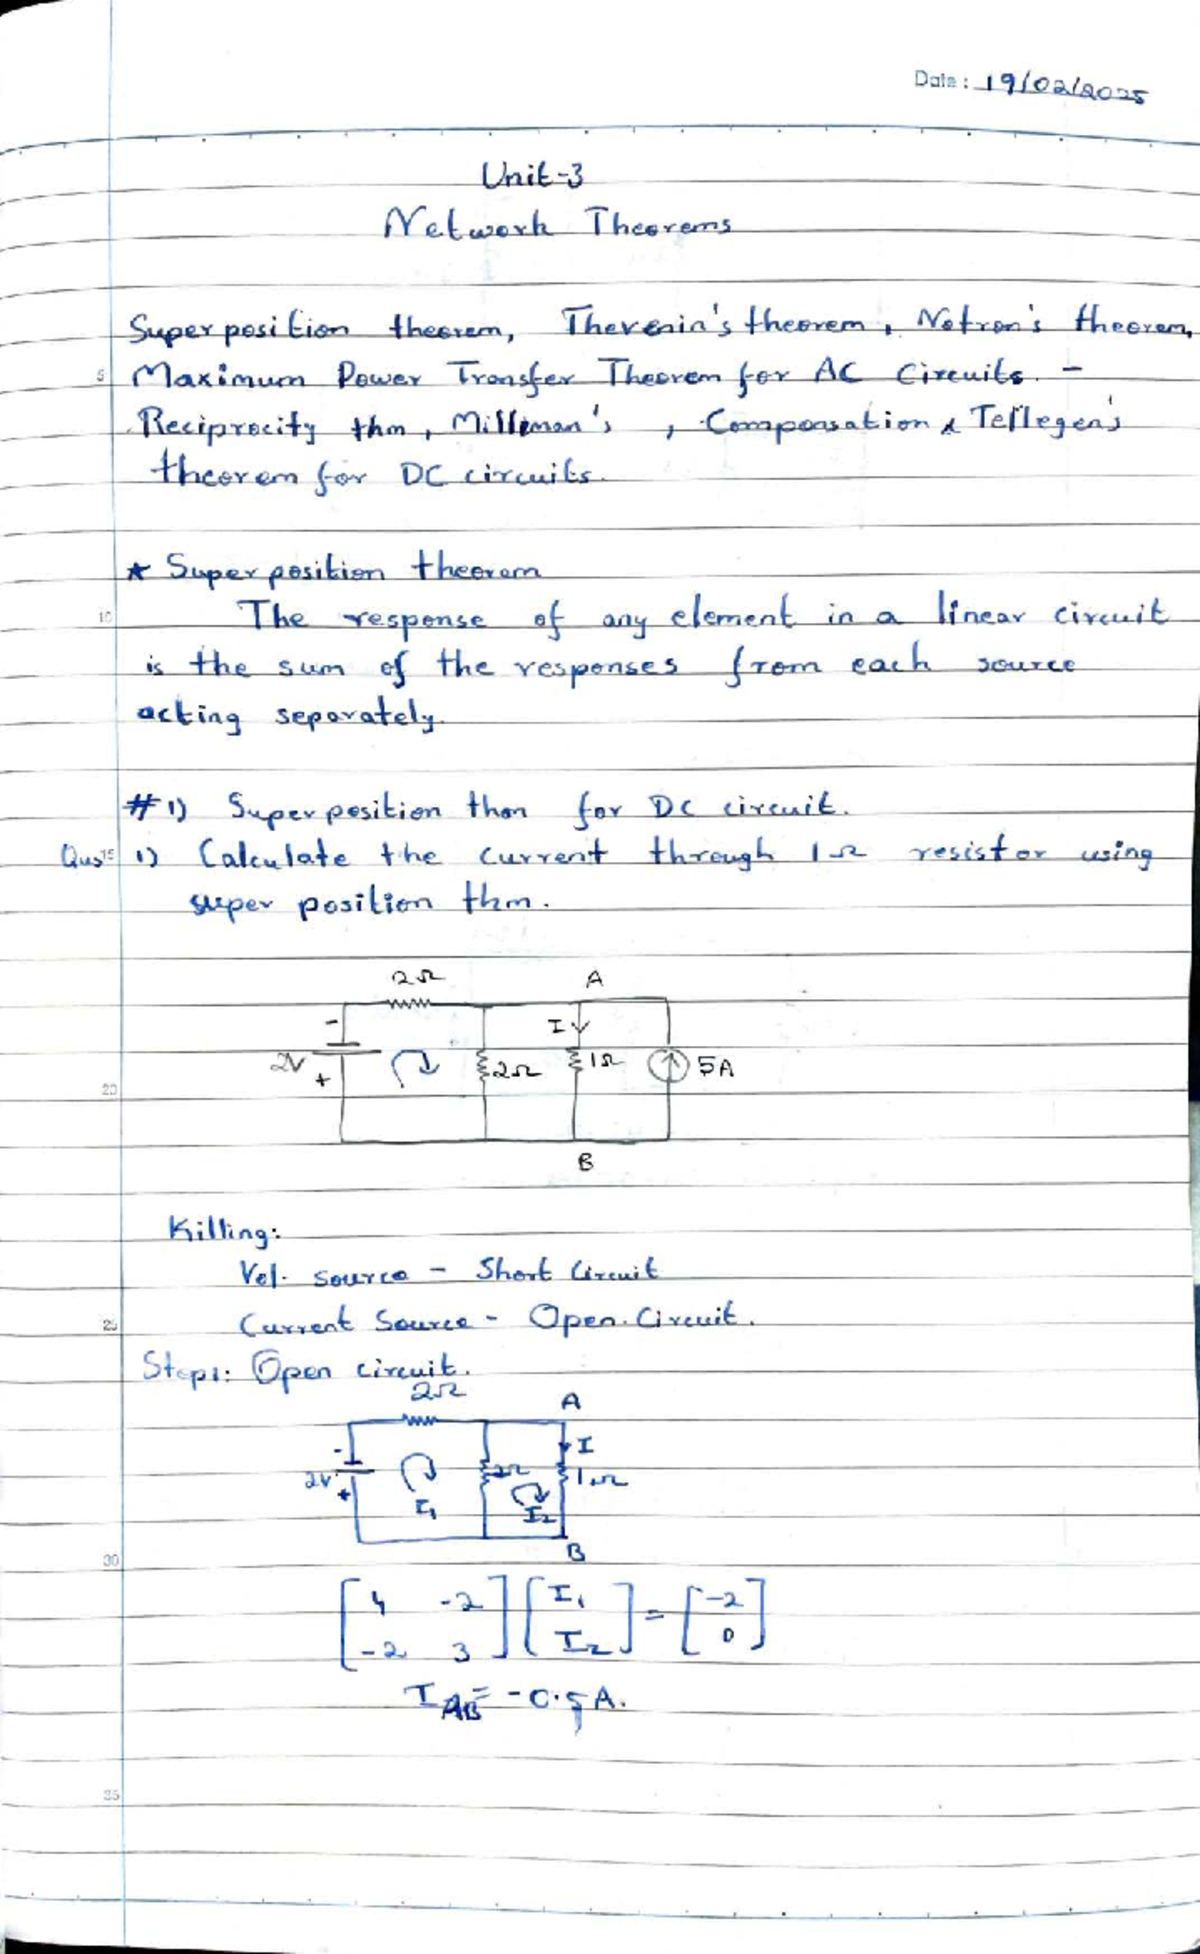 Date: 19/02/2025
Unit-3
Network Theorems
Superposition theorem, Thevenin's theorem, Notron's theorem,
5 Maximum Power Transfer Theorem for AC Circuits. -
Reciprocity thm, Milliman's, Compensation & Tellegen's
theorem for DC circuits.
★ Superposition theorem
10 The response of any element in a linear circuit
is the sum of the responses from each source
acting separately.
#1) Superposition thm for DC circuit.
Qus 15 1) Calculate the current through 1Ω resistor using
super position thm.
2Ω A
- I
2V + 2Ω 1Ω 5A
20
B
Killing:
Vol. source - Short Circuit
25 Current Source - Open Circuit.
Step1: Open circuit.
2Ω A
- I
2V + 2Ω 1Ω
I₁ I₂
30 B
[4 -2] [I₁] = [-2]
[-2 3] [I₂] [0]
I AB = -0.5A.
35